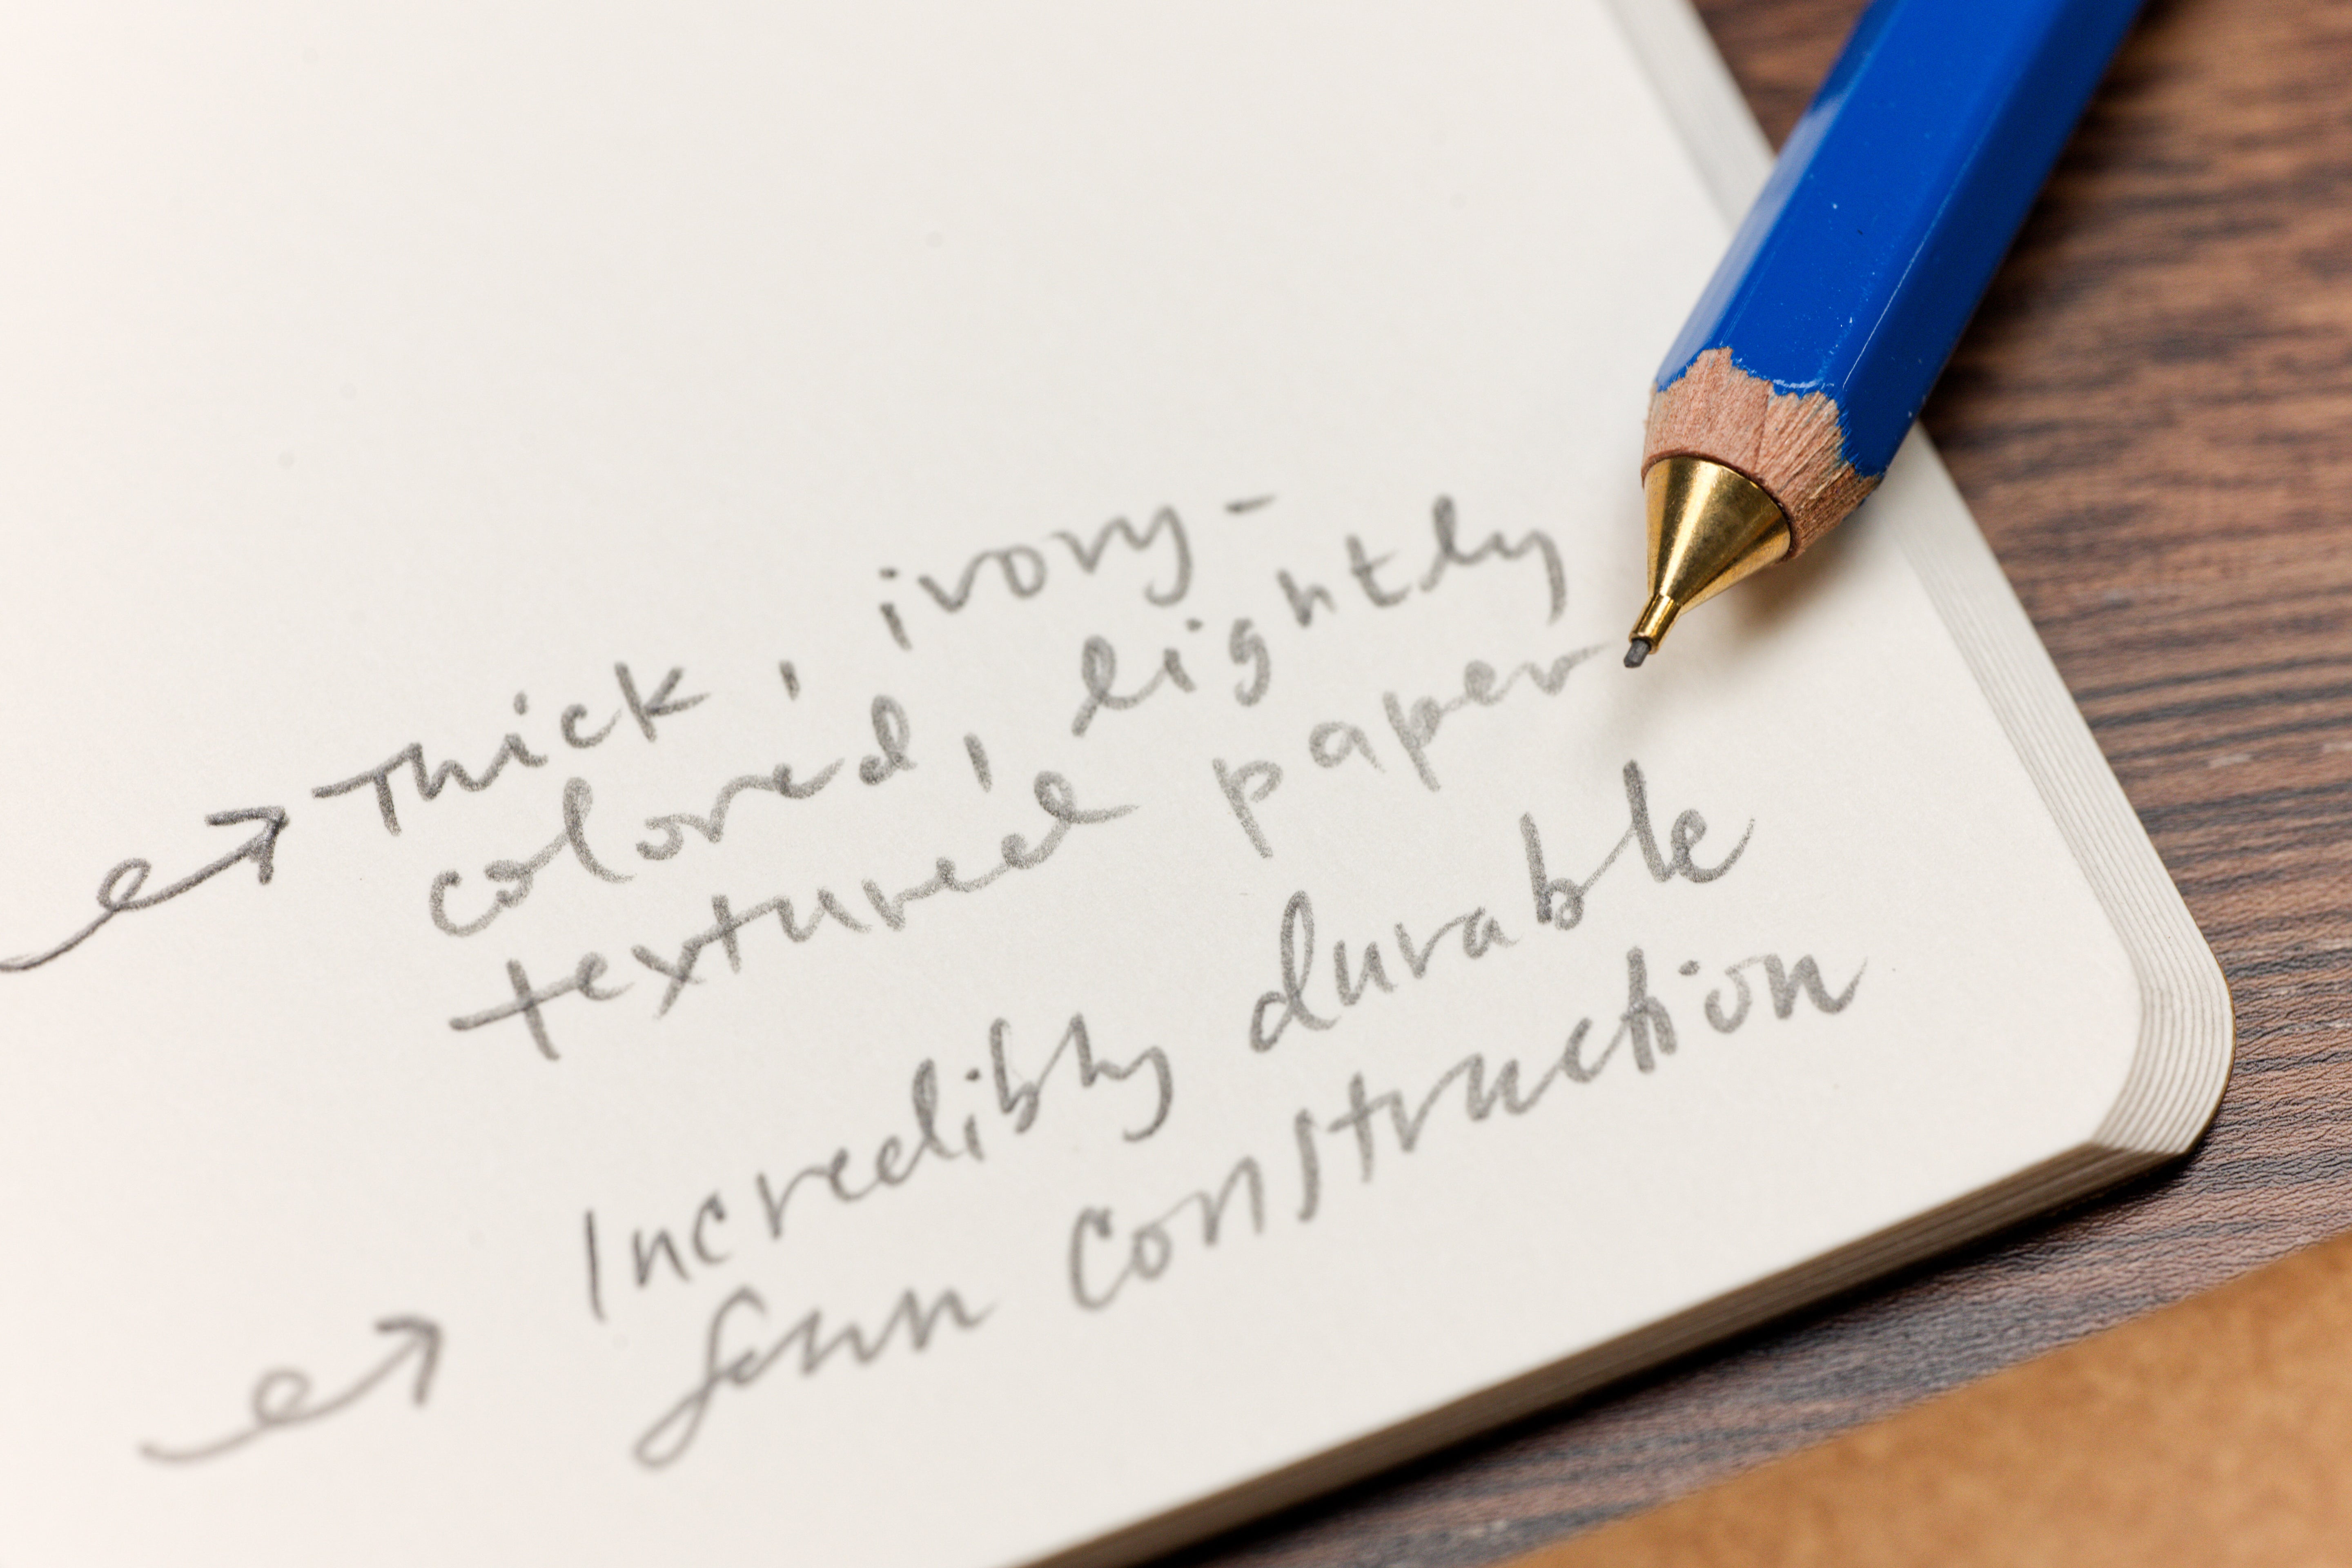 Thick, ivory-
colored, lightly
textured paper
Incredibly durable
sewn construction